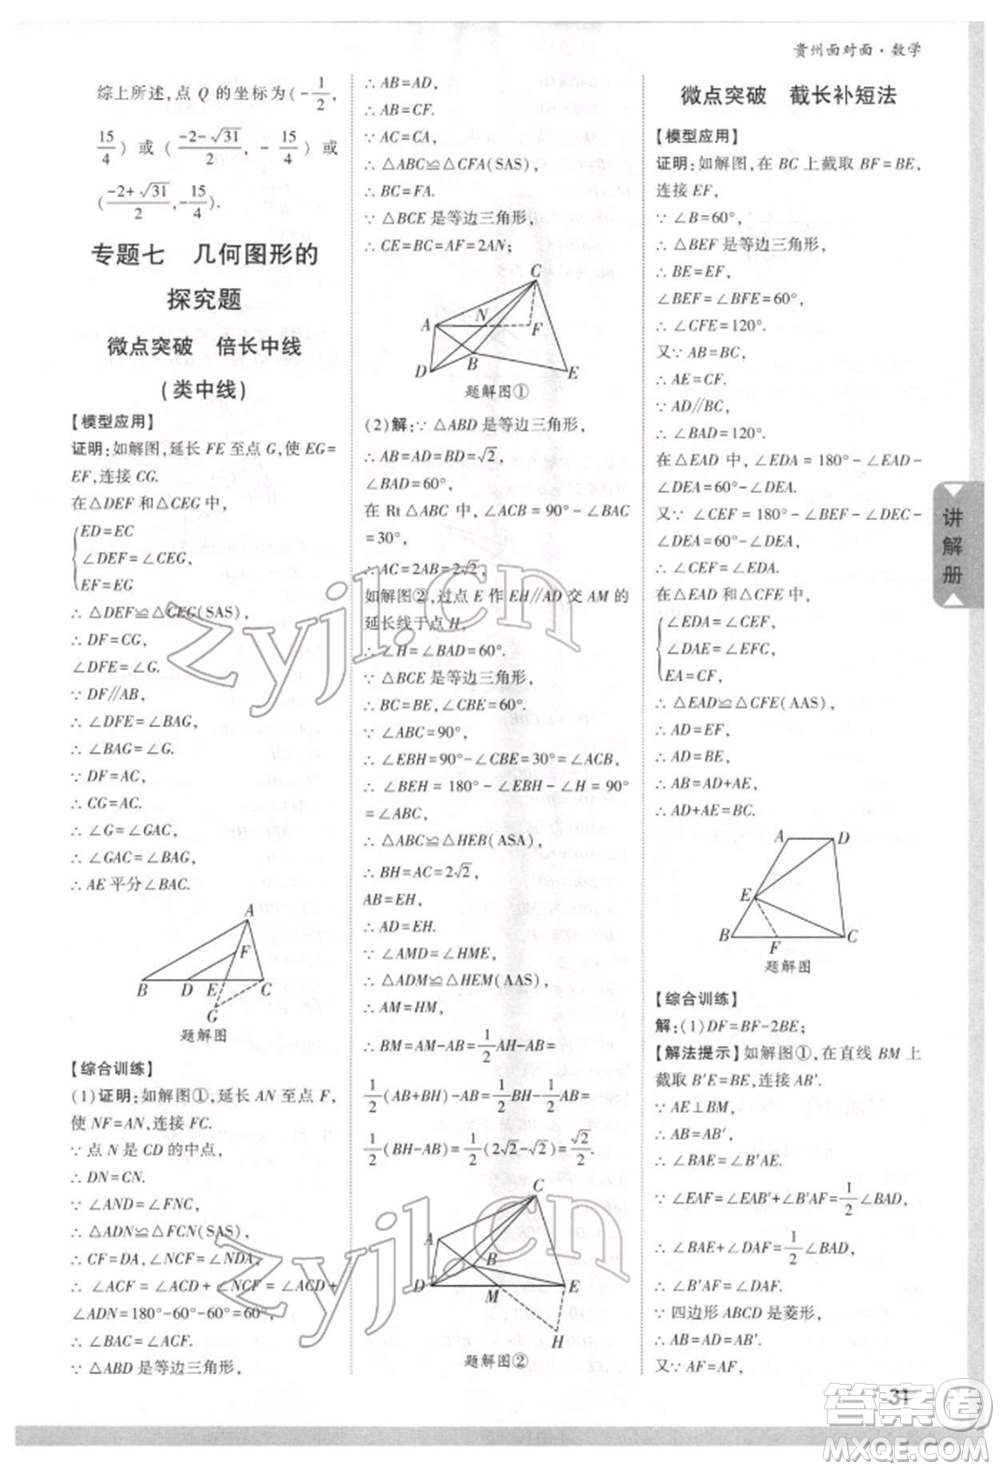 贵州面对面·数学
综上所述,点 Q 的坐标为(-1/2,
15/4) 或 ((-2-√31)/2, -15/4) 或
((-2+√31)/2,-15/4).
专题七 几何图形的
探究题
微点突破 倍长中线
(类中线)
【模型应用】
证明:如解图,延长 FE 至点 G,使 EG=
EF,连接 CG.
在△DEF 和△CEG 中,
ED=EC
∠DEF=∠CEG,
EF=EG
∴ △DEF≌△CEG(SAS),
∴ DF=CG,
∠DFE=∠G.
∵ DF∥AB,
∴ ∠DFE=∠BAG,
∴ ∠BAG=∠G.
∵ DF=AC,
∴ CG=AC,
∴ ∠G=∠GAC,
∴ ∠GAC=∠BAG,
∴ AE 平分∠BAC.
A
F
B D E C
G
题解图
【综合训练】
(1)证明:如解图①,延长 AN 至点 F,
使 NF=AN,连接 FC.
∵ 点 N 是 CD 的中点,
∴ DN=CN.
∵ ∠AND=∠FNC,
∴ △ADN≌△FCN(SAS),
∴ CF=DA,∠NCF=∠NDA,
∴ ∠ACF=∠ACD+∠NCF=∠ACD+
∠ADN=180°-60°-60°=60°,
∴ ∠BAC=∠ACF.
∵ △ABD 是等边三角形,
∴ AB=AD,
∴ AB=CF.
∵ AC=CA,
∴ △ABC≌△CFA(SAS),
∴ BC=FA.
∵ △BCE 是等边三角形,
∴ CE=BC=AF=2AN;
C
A N F
B
D E
题解图①
(2)解:∵ △ABD 是等边三角形,
∴ AB=AD=BD=√2,
∠BAD=60°,
在 Rt△ABC 中,∠ACB=90°-∠BAC
=30°,
∴ AC=2AB=2√2.
如解图②,过点 E 作 EH∥AD 交 AM 的
延长线于点 H,
∴ ∠H=∠BAD=60°.
∵ △BCE 是等边三角形,
∴ BC=BE,∠CBE=60°.
∵ ∠ABC=90°,
∴ ∠EBH=90°-∠CBE=30°=∠ACB,
∴ ∠BEH=180°-∠EBH-∠H=90°
=∠ABC,
∴ △ABC≌△HEB(ASA),
∴ BH=AC=2√2,
AB=EH,
∴ AD=EH.
∵ ∠AMD=∠HME,
∴ △ADM≌△HEM(AAS),
∴ AM=HM,
∴ BM=AM-AB=1/2AH-AB=
1/2(AB+BH)-AB=1/2BH-1/2AB=
1/2(BH-AB)=1/2(2√2-√2)=√2/2.
C
A
B
D M E
H
题解图②
微点突破 截长补短法
【模型应用】
证明:如解图,在 BC 上截取 BF=BE,
连接 EF,
∵ ∠B=60°,
∴ △BEF 是等边三角形,
∴ BE=EF,
∠BEF=∠BFE=60°,
∴ ∠CFE=120°.
又∵ AB=BC,
∴ AE=CF.
∵ AD∥BC,
∴ ∠BAD=120°.
在△EAD 中,∠EDA=180°-∠EAD-
∠DEA=60°-∠DEA.
又∵ ∠CEF=180°-∠BEF-∠DEC-
∠DEA=60°-∠DEA.
在△EAD 和△CFE 中,
∠EDA=∠CEF,
∠DAE=∠EFC,
EA=CF,
∴ △EAD≌△CFE(AAS),
∴ AD=EF,
∴ AD=BE.
∵ AB=AE+BE,
∴ AB=AD+AE,
∴ AD+AE=BC.
A D
E
B F C
题解图
【综合训练】
解:(1)DF=BF-2BE;
【解法提示】如解图①,在直线 BM 上
截取 B′E=BE,连接 AB′.
∵ AE⊥BM,
∴ AB=AB′,
∴ ∠BAE=∠B′AE.
∵ ∠EAF=∠EAB′+∠B′AF=1/2∠BAD,
∴ ∠EAF=∠BAE+∠DAF=1/2∠BAD,
∴ ∠B′AF=∠DAF.
∵ 四边形 ABCD 是菱形,
∴ AB=AD=AB′.
又∵ AF=AF,
讲解册
31
zyjl.cn
zyjl.cn
答案圈
MXQE.COM